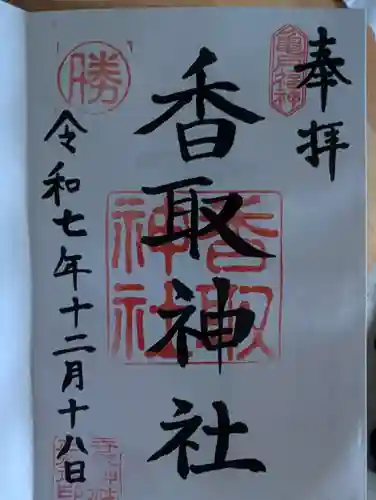 奉拝
亀戸福神
香取神社
香取神社
勝
令和七年十二月十八日